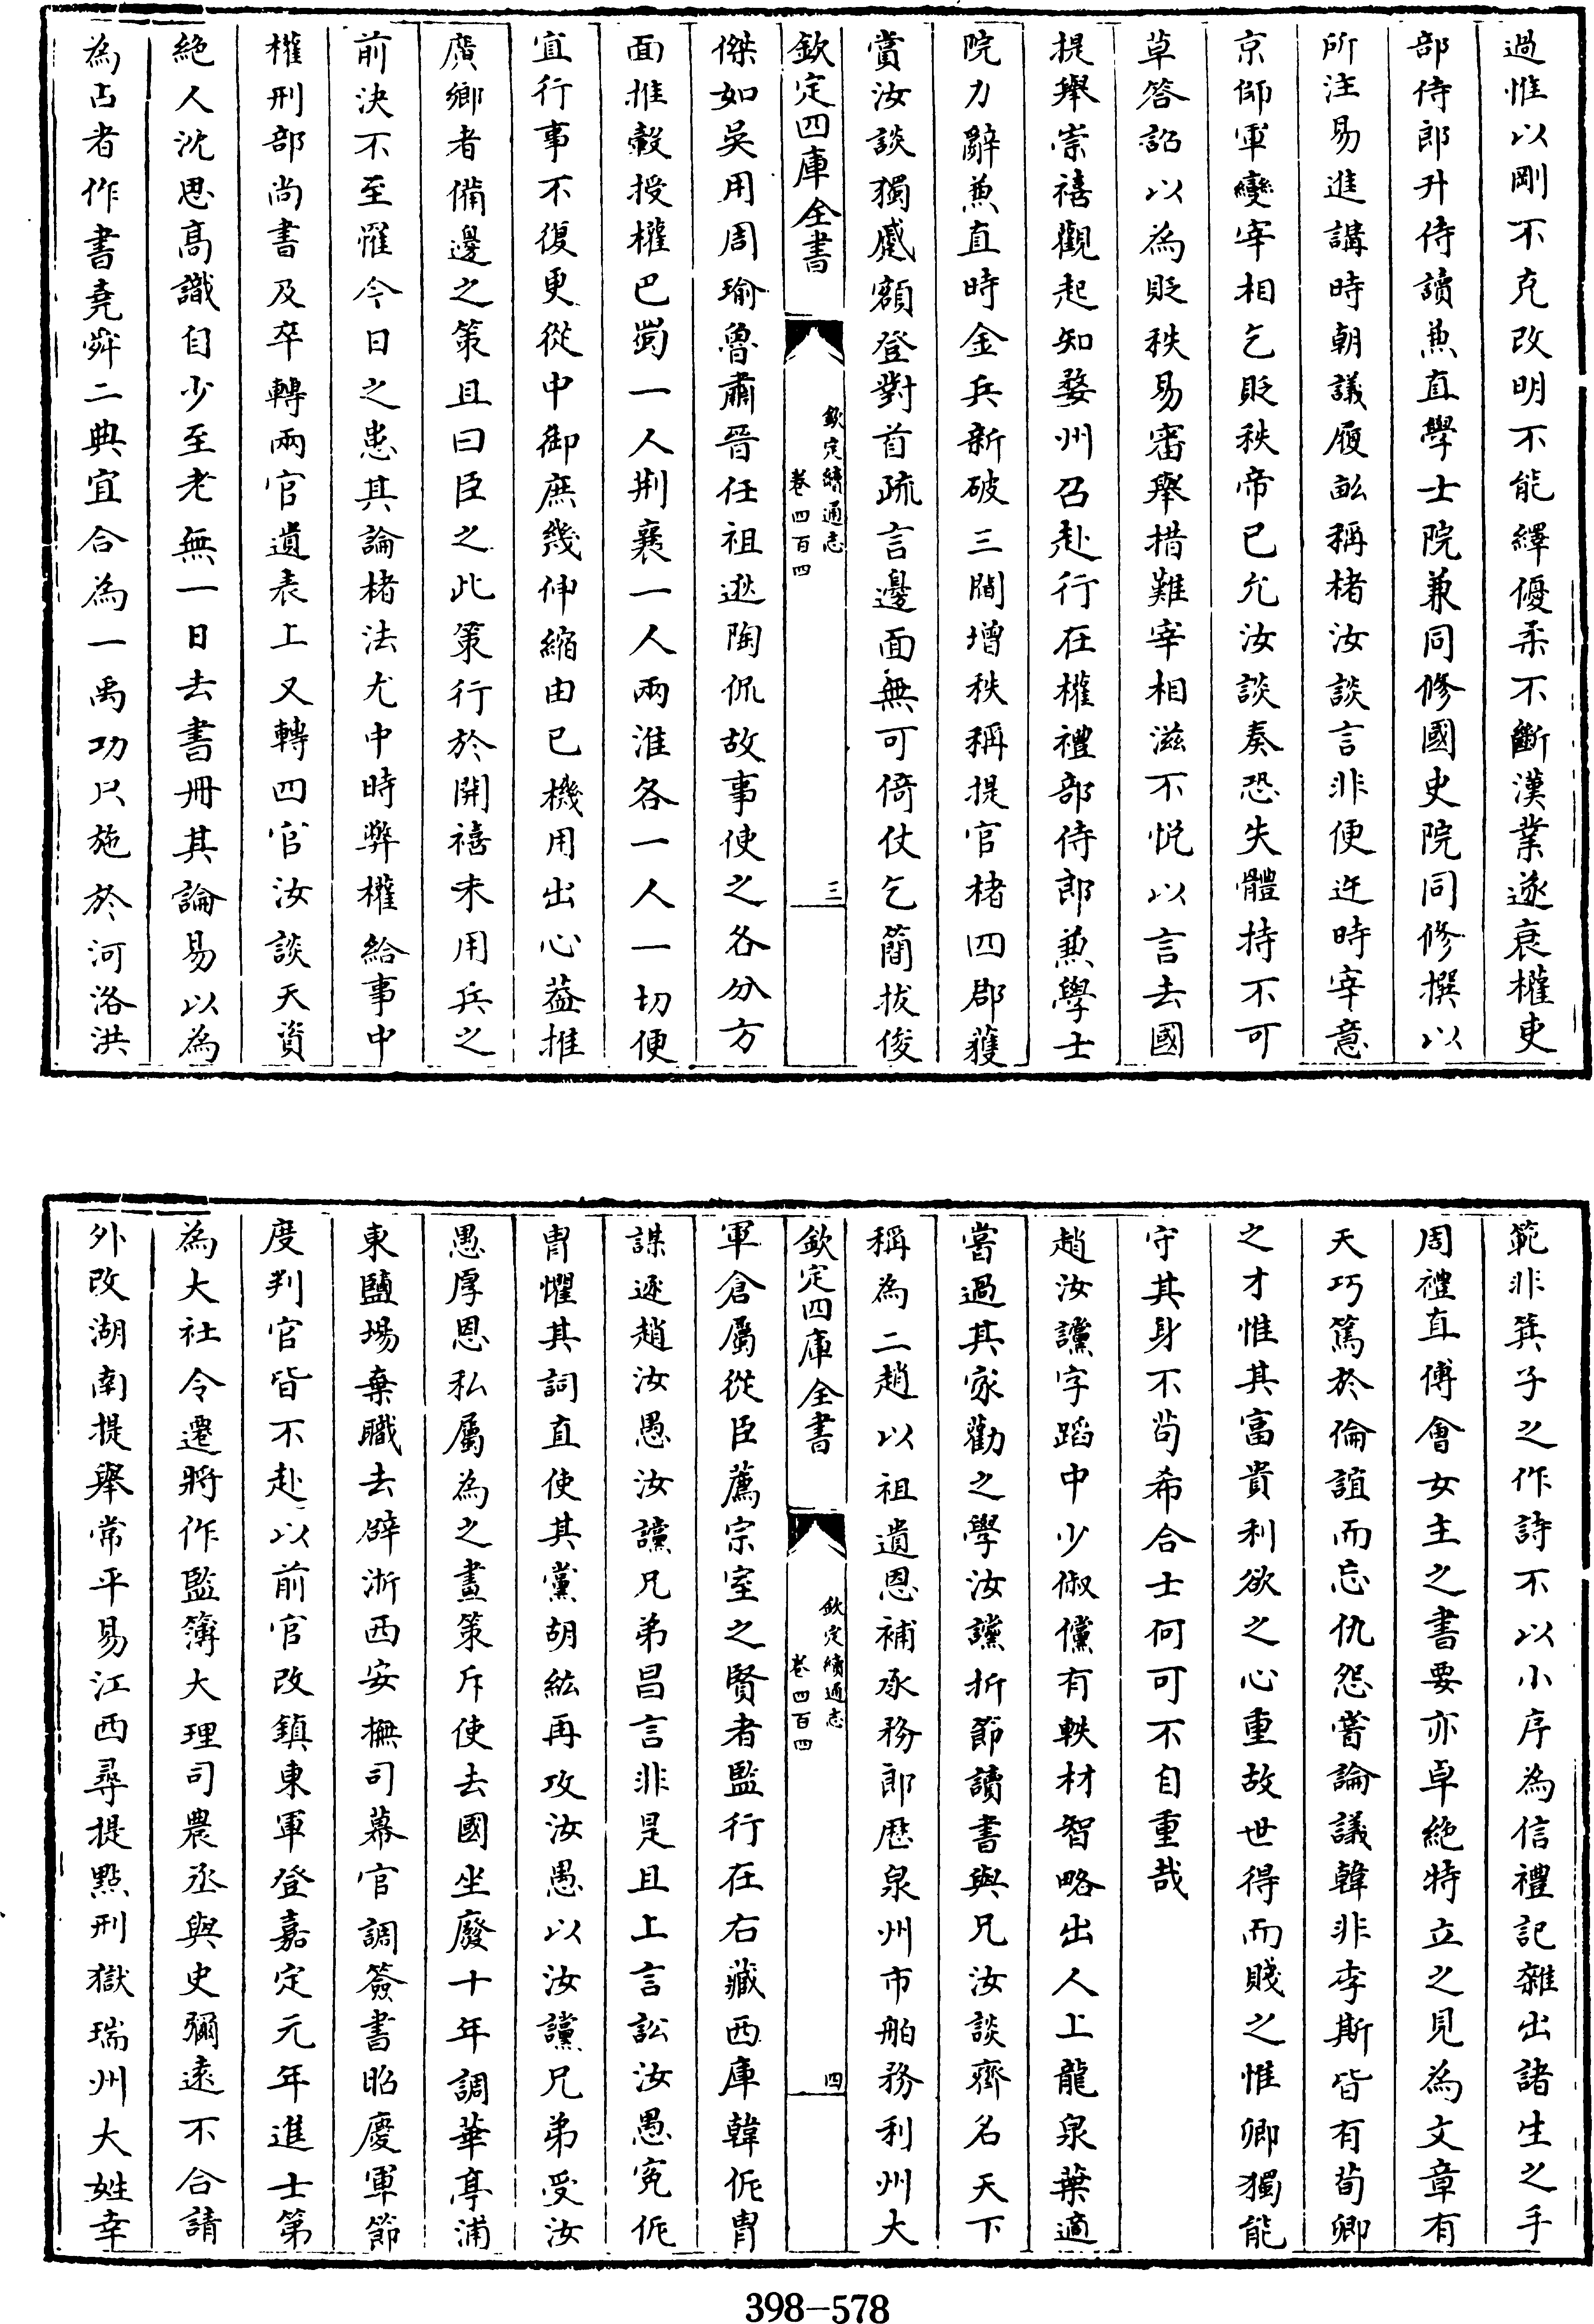 過惟以剛不克改明不能繹優柔不斷漢業遂衰權吏
部侍郎升侍讀兼直學士院兼同修國史院同修撰以
所注易進講時朝議履畝稱楮汝談言非便迕時宰意
京師軍變宰相乞貶秩帝已允汝談奏恐失體持不可
草答詔以為貶秩易審舉措難宰相滋不悅以言去國
提舉崇禧觀起知婺州召赴行在權禮部侍郎兼學士
院力辭兼直時金兵新破三關增秩稱提官楮四郡蠖
賞汝談獨蹙額登對首疏言邊面無可倚仗乞簡拔俊
欽定四庫全書
欽定續通志
卷四百四
三
傑如吳用周瑜魯肅晉任祖逖陶侃故事使之各分方
面推轂授權巴蜀一人荆襄一人兩淮各一人一切便
宜行事不復更從中御庶幾伸縮由已機用出心葢推
廣鄉者備邊之策且曰臣之此策行於開禧未用兵之
前決不至罹今日之患其論楮法尤中時弊權給事中
權刑部尚書及卒轉兩官遺表上又轉四官汝談天資
絶人沈思高識自少至老無一日去書冊其論易以為
為占者作書堯舜二典宜合為一禹功只施於河洛洪
範非箕子之作詩不以小序為信禮記雜出諸生之手
周禮直傅會女主之書要亦卓絶特立之見為文章有
天巧篤於倫誼而忘仇怨嘗論議韓非李斯皆有荀卿
之才惟其富貴利欲之心重故世得而賤之惟卿獨能
守其身不苟希合士何可不自重哉
趙汝讜字蹈中少俶儻有軼材智略出人上龍泉葉適
嘗過其家勸之學汝讜折節讀書與兄汝談齊名天下
稱為二趙以祖遺恩補承務郎歷泉州市舶務利州大
欽定四庫全書
欽定續通志
卷四百四
四
軍倉屬從臣薦宗室之賢者監行在右藏西庫韓侂胄
謀逐趙汝愚汝讜兄弟昌言非是且上言訟汝愚寃侂
胄懼其詞直使其黨胡紘再攻汝愚以汝讜兄弟受汝
愚厚恩私屬為之畫策斥使去國坐廢十年調華亭浦
東鹽場棄職去辟浙西安撫司幕官調簽書昭慶軍節
度判官皆不赴以前官改鎮東軍登嘉定元年進士第
為大社令遷將作監簿大理司農丞與史彌遠不合請
外改湖南提舉常平易江西尋提點刑獄瑞州大姓幸
398-578